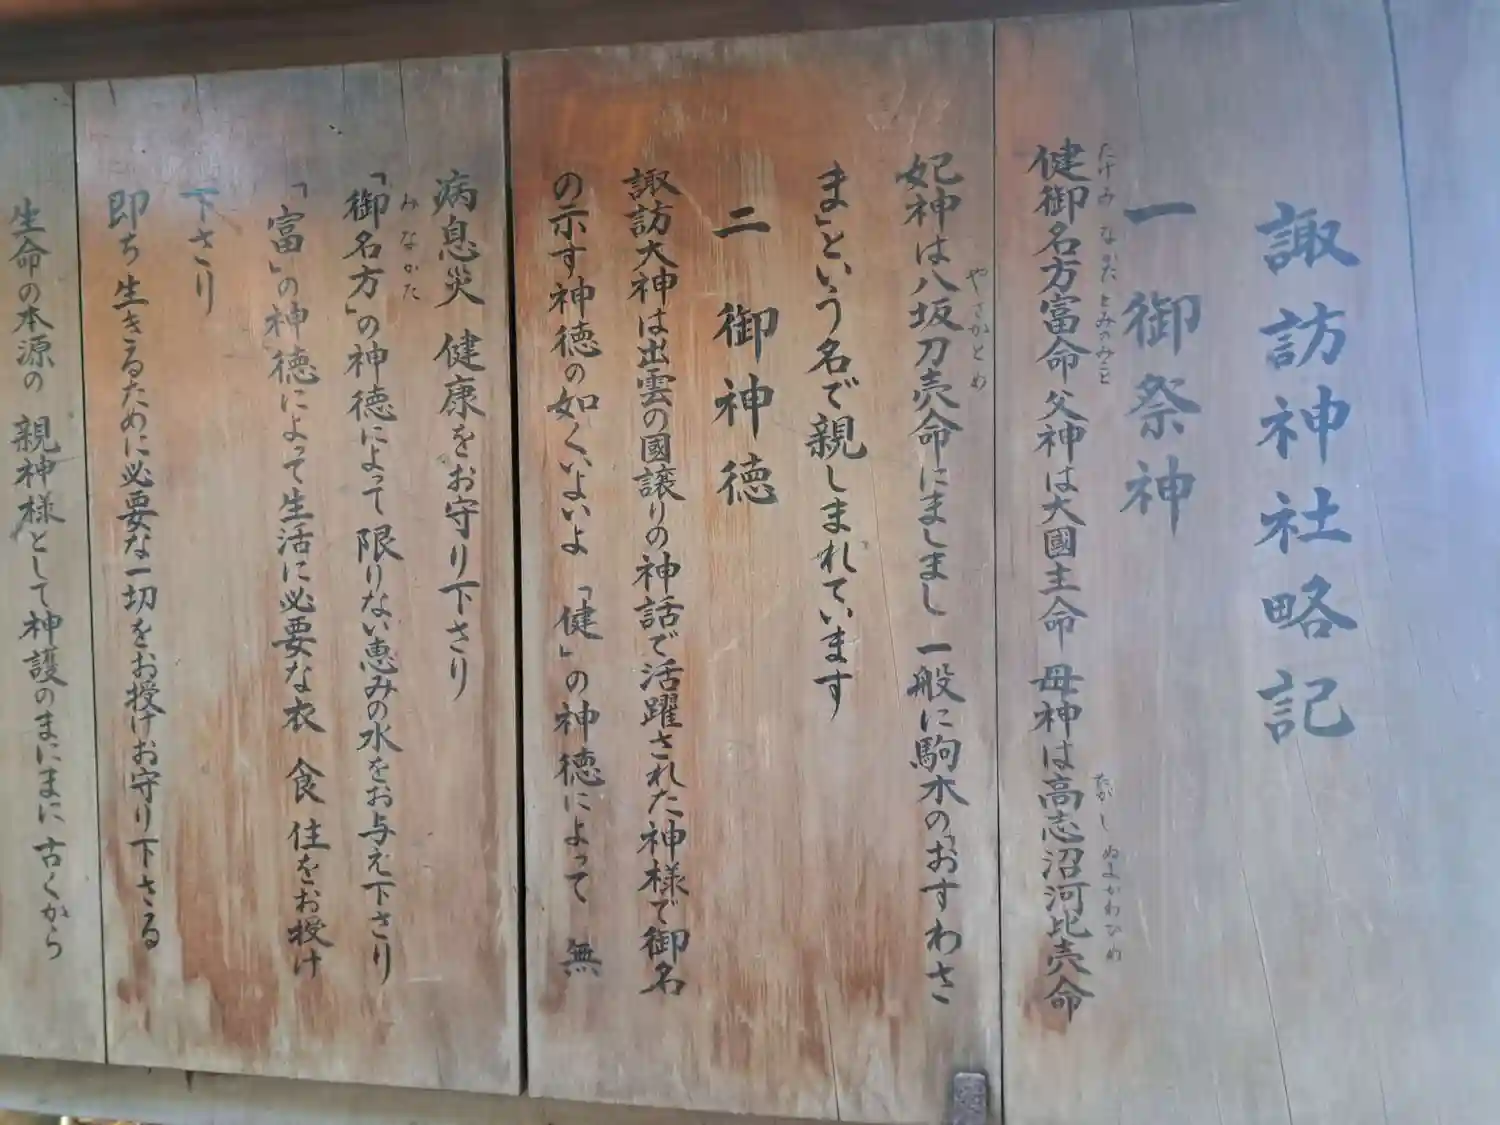 諏訪神社略記
一 御祭神
健御名方富命 父神は大國主命 母神は高志沼河比売命
たけみなかたとみのみこと
たかし ぬまかわひめ
妃神は八坂刀売命にましまし 一般に駒木の「おすわさ
やさかとめ
ま」という名で親しまれています
二 御神徳
諏訪大神は出雲の國譲りの神話で活躍された神様で御名
の示す神徳の如くいよいよ 「健」の神徳によって 無
病息災 健康をお守り下さり
「御名方」の神徳によって 限りない恵みの水をお与え下さり
みなかた
「富」の神徳によって生活に必要な衣 食 住をお授け
下さり
即ち生きるために必要な一切をお授けお守り下さる
生命の本源の 親神様として神護のまにまに 古くから